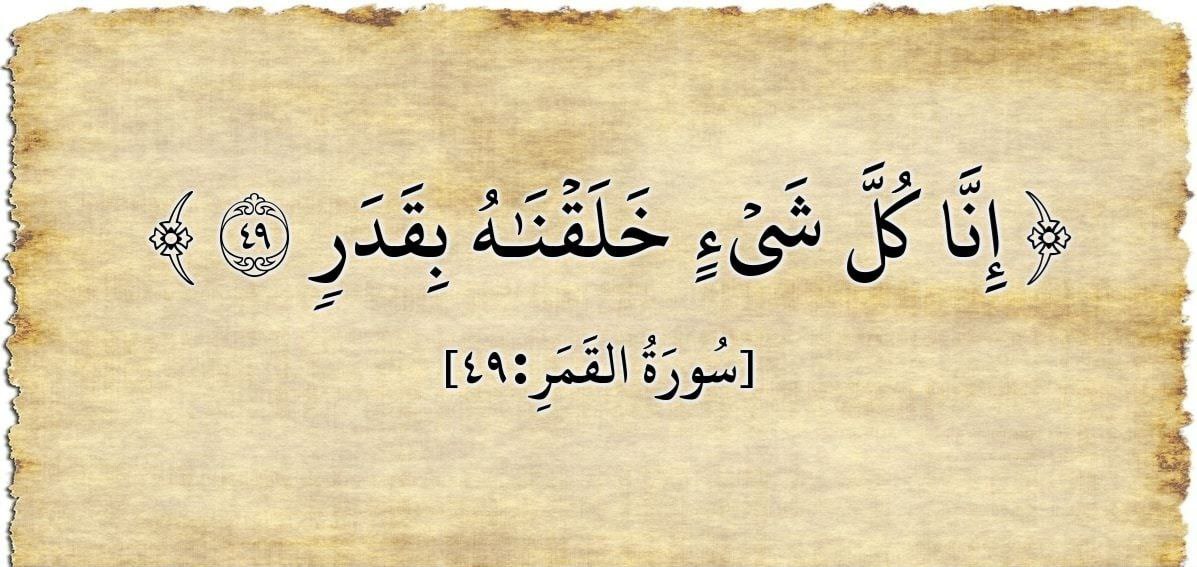 ﴿ إِنَّا كُلَّ شَىْءٍ خَلَقْنَـٰهُ بِقَدَرٍ ٤٩ ﴾
[سُورَةُ القَمَرِ:٤٩]